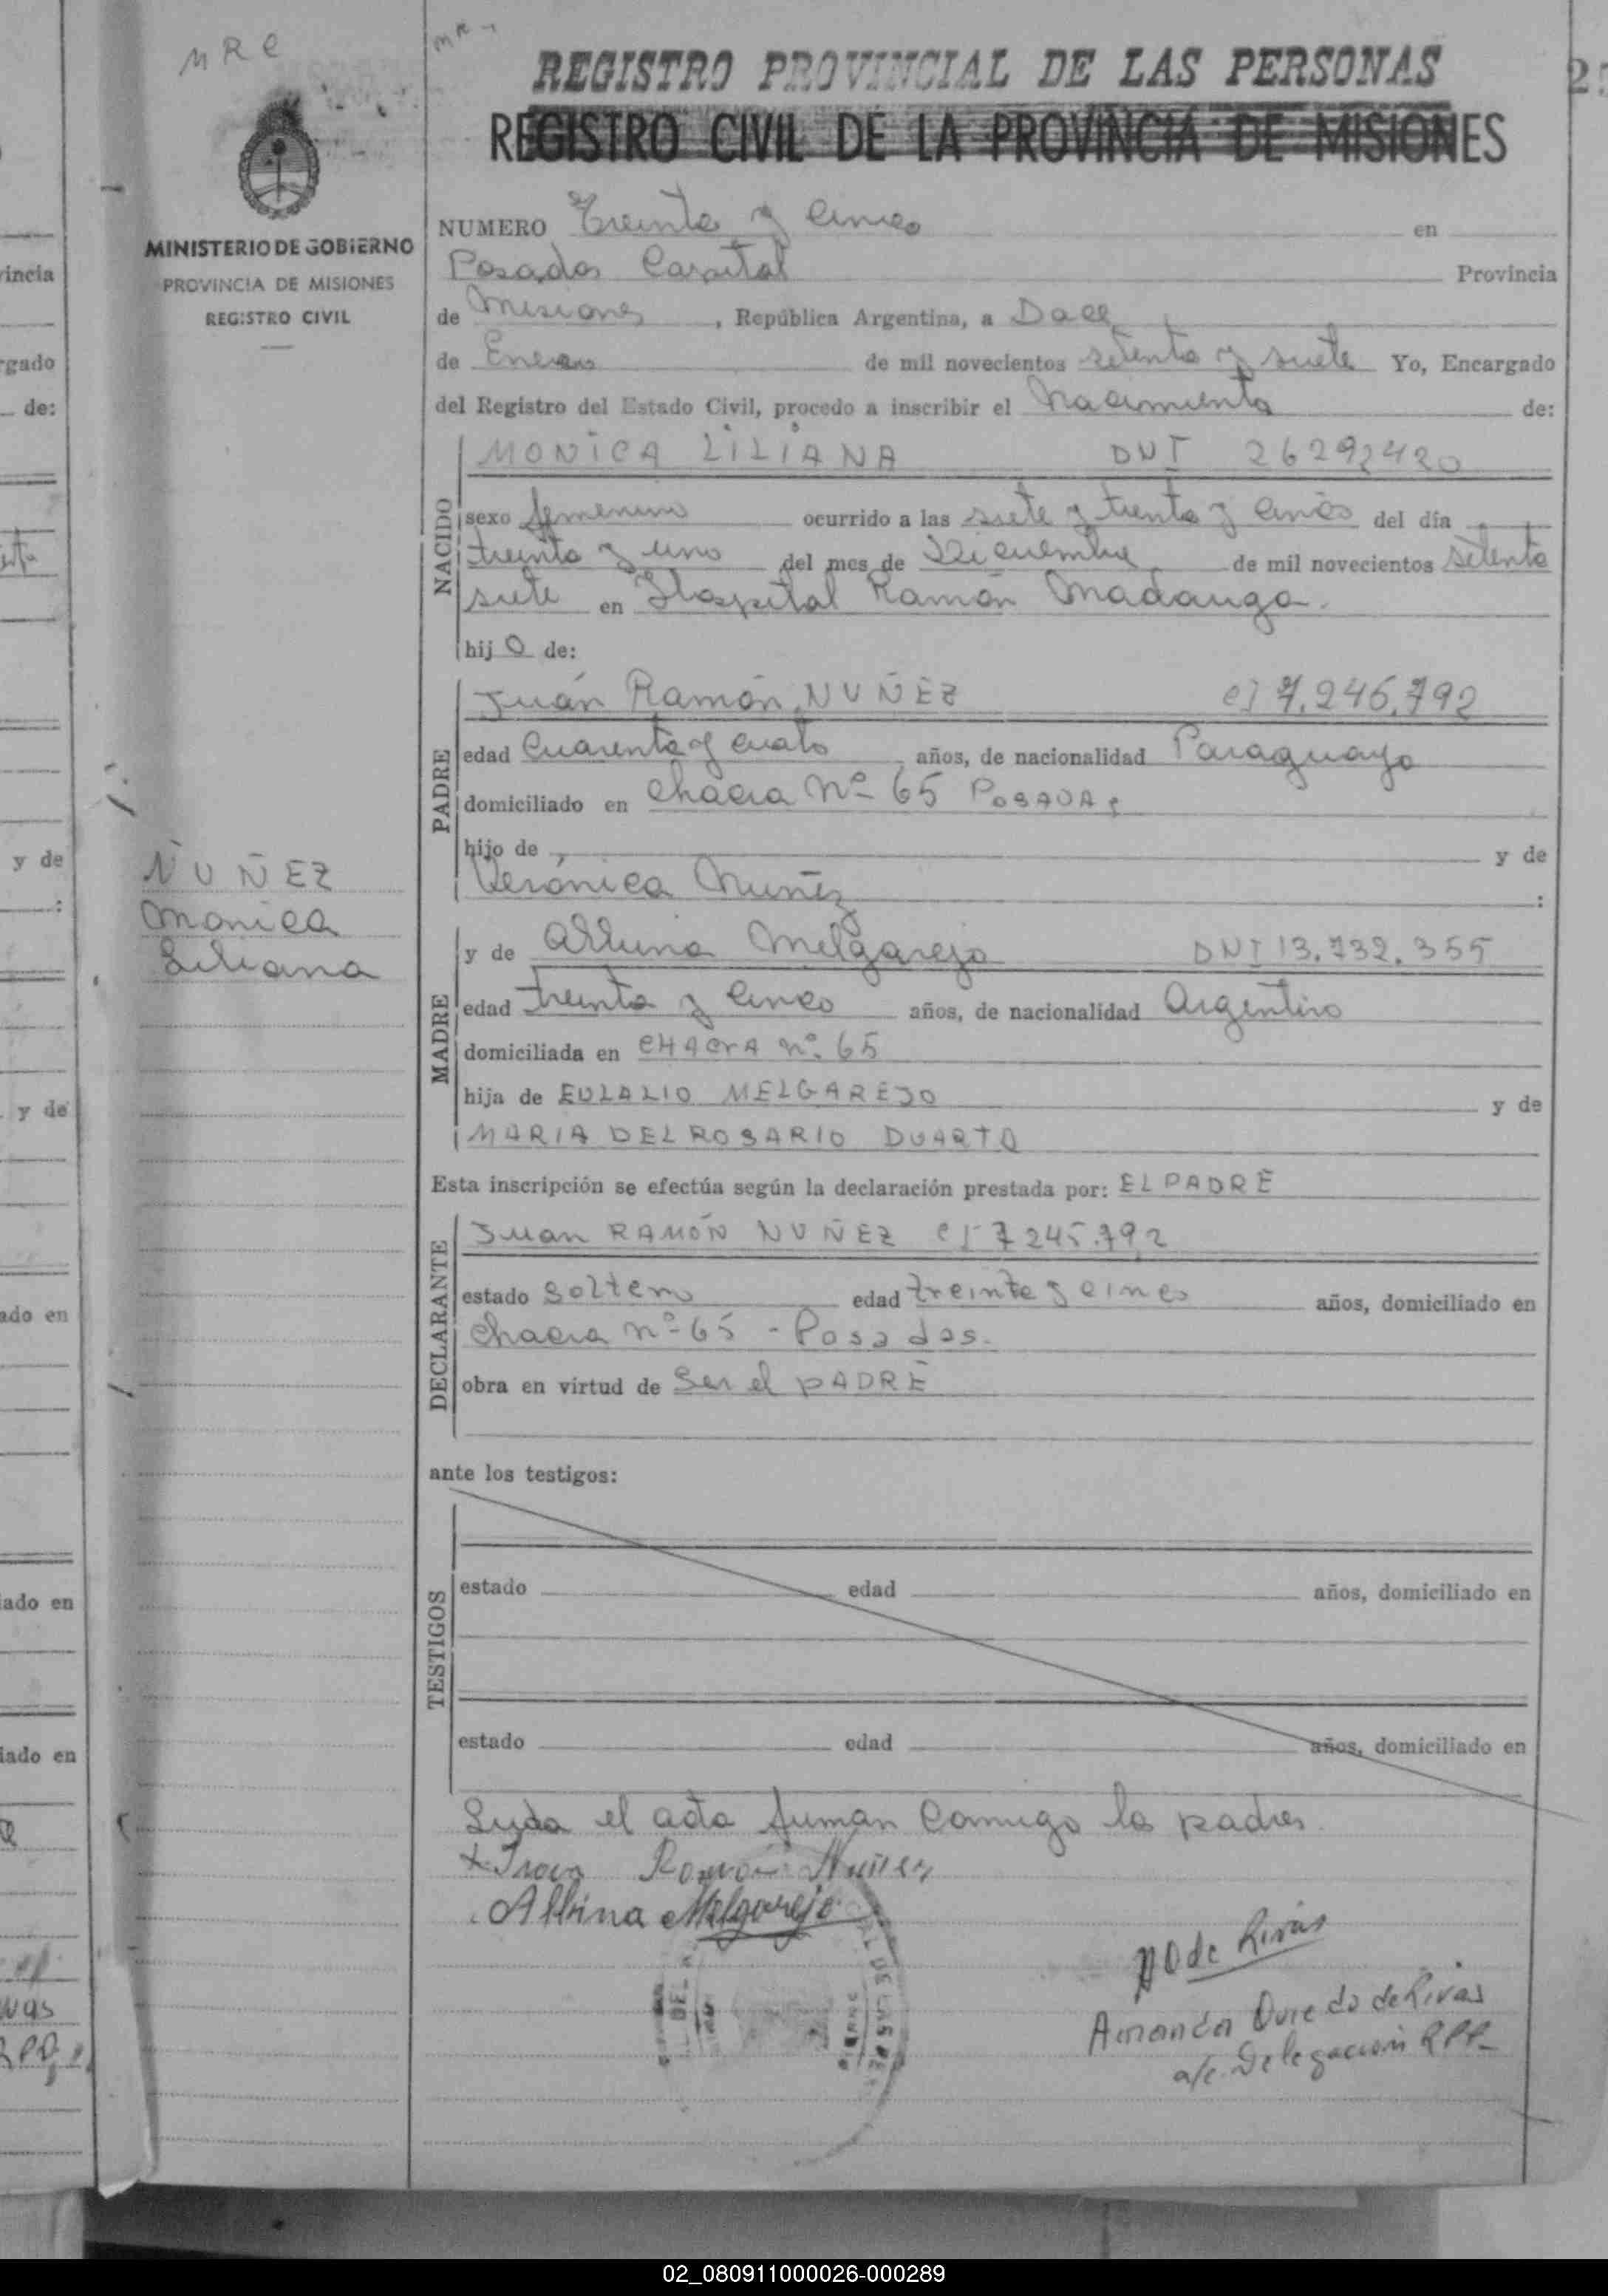 MRC
REGISTRO PROVINCIAL DE LAS PERSONAS
REGISTRO CIVIL DE LA PROVINCIA DE MISIONES
MINISTERIO DE GOBIERNO
PROVINCIA DE MISIONES
REGISTRO CIVIL
NUMERO Treinta y Cinco en
Posadas Capital Provincia
de Misiones, República Argentina, a Doce
de Enero de mil novecientos setenta y siete Yo, Encargado
del Registro del Estado Civil, procedo a inscribir el Nacimiento de:
NACIDO
MONICA LILIANA DNI 26292420
sexo femenino ocurrido a las siete y treinta y cinco del día
treinta y uno del mes de Diciembre de mil novecientos setenta
siete en Hospital Ramón Madariaga.
hij o de:
PADRE
Juán Ramón NUÑEZ CI 7.245.792
edad Cuarenta y cuato años, de nacionalidad Paraguayo
domiciliado en Chacra Nº 65 POSADAS
hijo de y de
Verónica Nuñez :
NUÑEZ
Monica
Liliana
MADRE
y de Albina Melgarejo DNI 13.732.355
edad treinta y cinco años, de nacionalidad Argentino
domiciliada en CHACRA nº 65
hija de EULALIO MELGAREJO y de
MARIA DEL ROSARIO DUARTO
Esta inscripción se efectúa según la declaración prestada por: EL PADRE
DECLARANTE
Juan RAMÓN NUÑEZ CI 7245.792
estado soltero edad treinta y cinco años, domiciliado en
Chacra nº 65 - Posadas.
obra en virtud de Ser el PADRE
ante los testigos:
TESTIGOS
estado edad años, domiciliado en
estado edad años, domiciliado en
Leida el acta firman Conmigo los padres.
Ramón Nuñez
Albina Melgarejo
AO de Rivas
Amanda Oviedo de Rivas
a/c. Delegación RPP
02_080911000026-000289